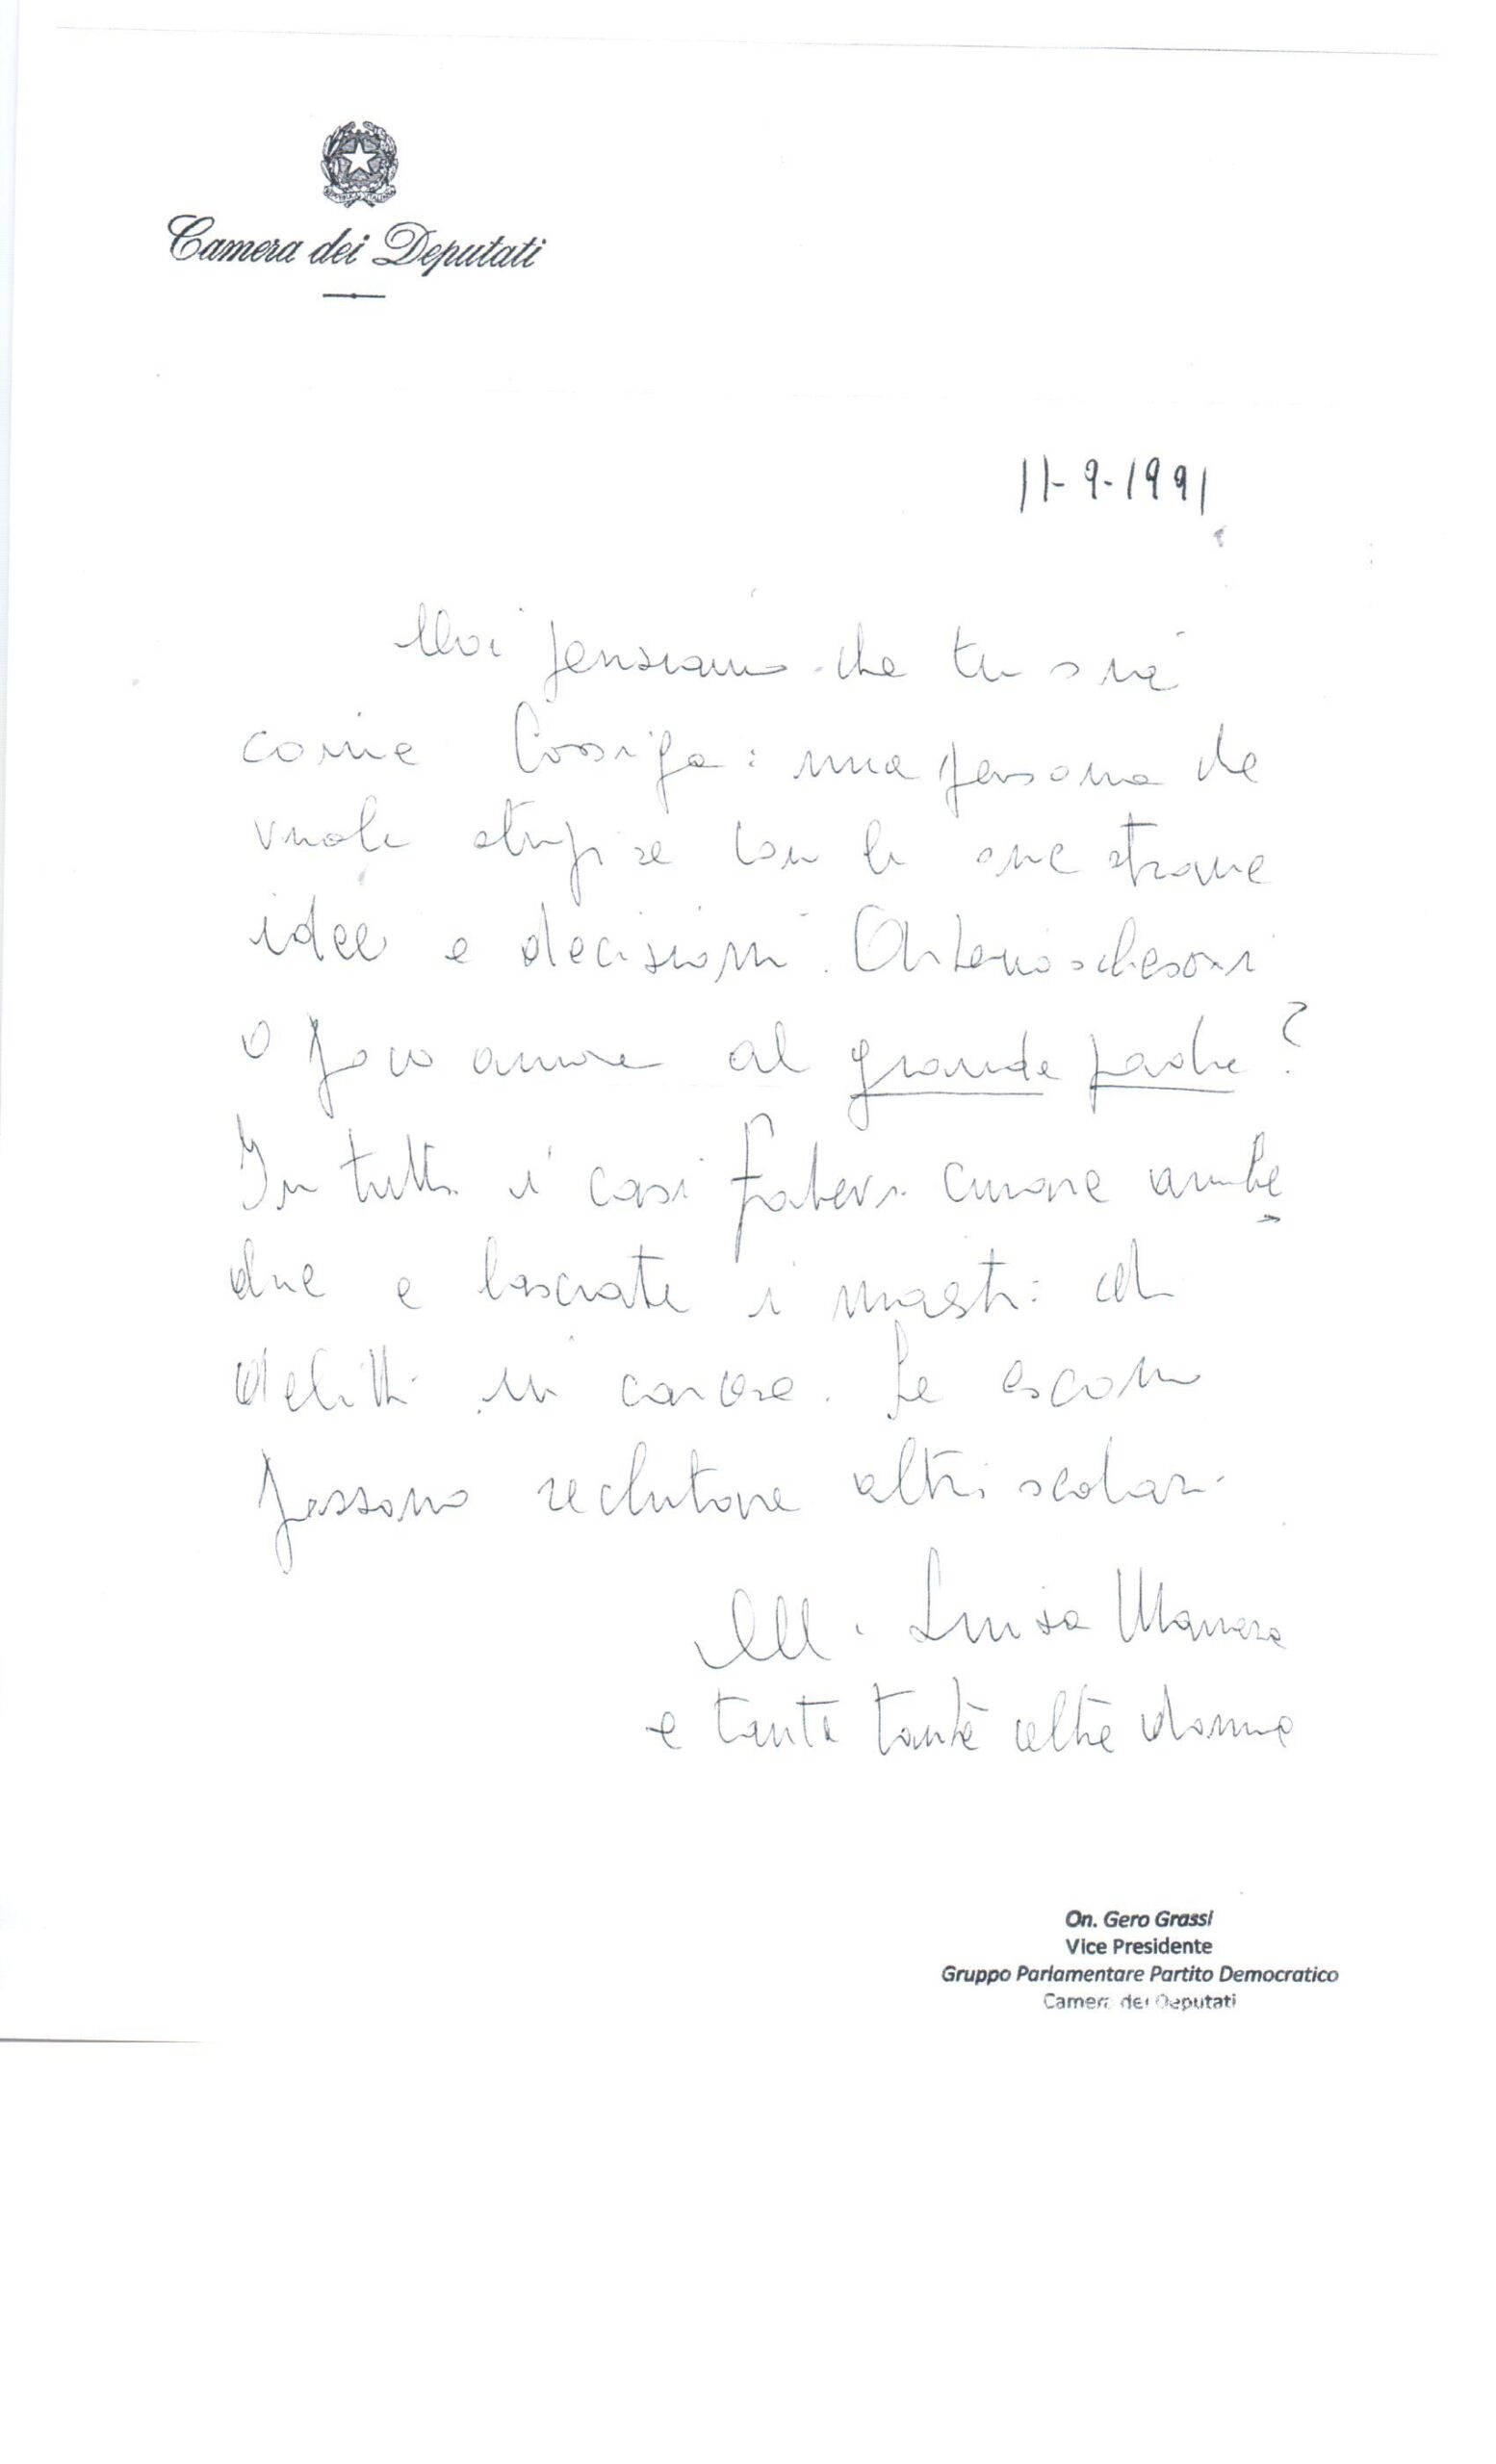 Camera dei Deputati
11-9-1991
Noi pensiamo che tu sia
come Cossiga: una persona che
vuole stupire con le sue strane
idee e decisioni. Arteriosclerosi
o poco amore al grande padre?
In tutti i casi fatevi curare ambe
due e lasciate i maestri di
delitti in carcere. Se escono
possono reclutare altri scolari
M. Luisa
e tante tante altre donne
On. Gero Grassi
Vice Presidente
Gruppo Parlamentare Partito Democratico
Camera dei Deputati